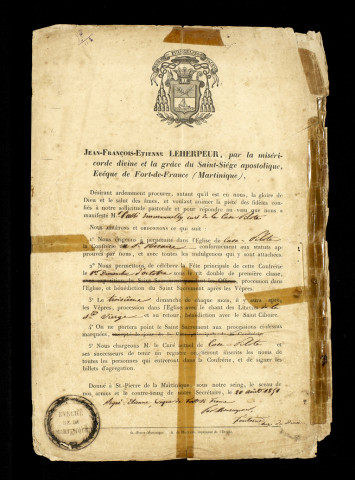 JEAN-FRANÇOIS-ETIENNE LEHERPEUR, par la miséri-
corde divine et la grâce du Saint-Siége apostolique,
Evêque de Fort-de-France (Martinique).
Désirant ardemment procurer, autant qu'il est en nous, la gloire de
Dieu et le salut des âmes, et voulant animer la piété des fidèles con-
fiés à notre sollicitude pastorale et pour répondre au vœu que nous a
manifesté M. l'abbé curé de la Case Pilote
Nous établissons et agissons ce qui suit
1° Nous érigeons à perpétuité dans l'Eglise de Case-Pilote
la Confrérie du St Rosaire conformément aux statuts ap-
prouvés par nous, et avec toutes les indulgences qui y sont attachées.
2° Nous permettons de célébrer la Fête principale de cette Confrérie
le 1er dimanche d'octobre sous le rit double de première classe,
procession dans
l'Eglise, et bénédiction du Saint Sacrement après les Vêpres.
3° Le troisième dimanche de chaque mois, il y aura après
les Vêpres, procession dans l'Eglise avec le chant des Litanies de la
Ste Vierge et au retour bénédiction avec le Saint Ciboire.
4° On ne portera point le Saint Sacrement aux processions ci-dessus
marquées,
5° Nous chargeons M. le Curé actuel de Case Pilote et
ses successeurs de tenir un registre où seront inscrits les noms de
toutes les personnes qui entreront dans la Confrérie, et de signer les
billets d'agrégation.
Donné à St-Pierre de la Martinique, sous notre seing, le sceau de
nos armes et le contre-seing de notre Secrétaire, le 20 août 1851
Signé: Etienne, évêque de Fort de France
Par Monseigneur
EVÊCHÉ
DE LA
MARTINIQUE